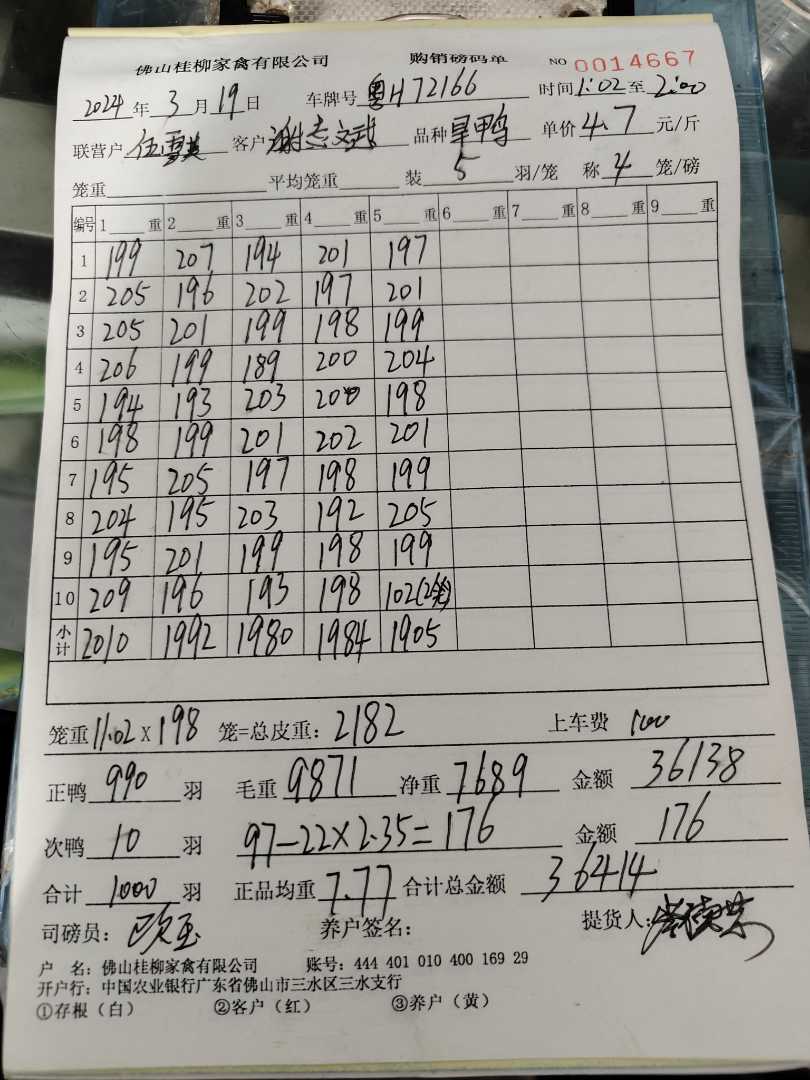 佛山桂柳家禽有限公司 购销磅码单 NO 0014667
2024 年 3 月 19 日 车牌号 粤H72166 时间 1:02 至 2:00
联营户 伍雪英 客户 谢志文武 品种 旱鸭 单价 4.7 元/斤
笼重 平均笼重 装 5 羽/笼 称 4 笼/磅
编号 1 重 2 重 3 重 4 重 5 重 6 重 7 重 8 重 9 重
1 199 207 194 201 197
2 205 196 202 197 201
3 205 201 199 198 199
4 206 199 189 200 204
5 194 193 203 200 198
6 198 199 201 202 201
7 195 205 197 198 199
8 204 195 203 192 205
9 195 201 199 198 199
10 209 196 193 198 102(2笼)
小计 2010 1992 1980 1984 1905
笼重 11.02 X 198 笼=总皮重: 2182 上车费 100
正鸭 990 羽 毛重 9871 净重 7689 金额 36138
次鸭 10 羽 97-22×2.35=176 金额 176
合计 1000 羽 正品均重 7.77 合计总金额 36414
司磅员: 欧玉 养户签名: 提货人:
户 名: 佛山桂柳家禽有限公司 账号: 444 401 010 400 169 29
开户行: 中国农业银行广东省佛山市三水区三水支行
①存根（白） ②客户（红） ③养户（黄）